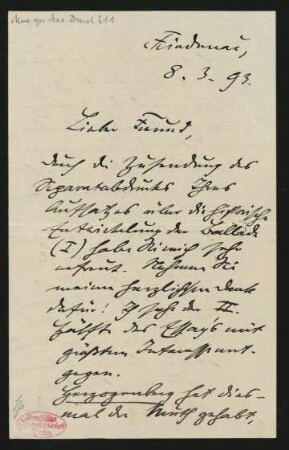 Friedenau,
8. 3. 93.
Lieber Freund,
durch die Zusendung des
Separatabdrucks Ihres
Aufsatzes über die historische
Entwickelung der Ballade
(I) haben Sie mich sehr
erfreut. Nehmen Sie
meinen herzlichsten Dank
dafür! Ich sehe der II.
Hälfte des Essays mit
größtem Interesse ent-
gegen.
Herzogenberg hat dies-
mal den Muth gehabt,